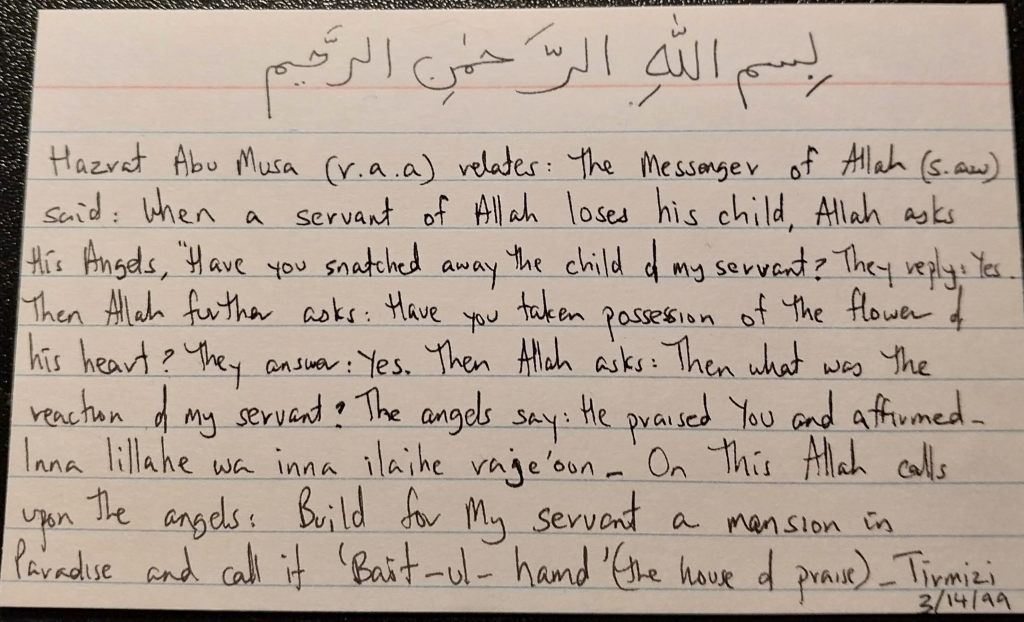 بِسمِ اللّٰهِ الرَّحمٰنِ الرَّحِيم
Hazrat Abu Musa (r.a.a) relates: The Messenger of Allah (s.aw)
said: When a servant of Allah loses his child, Allah asks
His Angels, "Have you snatched away the child of my servant? They reply: Yes.
Then Allah further asks: Have you taken possession of the flower of
his heart? They answer: Yes. Then Allah asks: Then what was the
reaction of my servant? The angels say: He praised You and affirmed-
Inna lillahe wa inna ilaihe raje'oon - On this Allah calls
upon the angels: Build for My servant a mansion in
Paradise and call it 'Bait-ul-hamd' (the house of praise) - Tirmizi
3/14/99